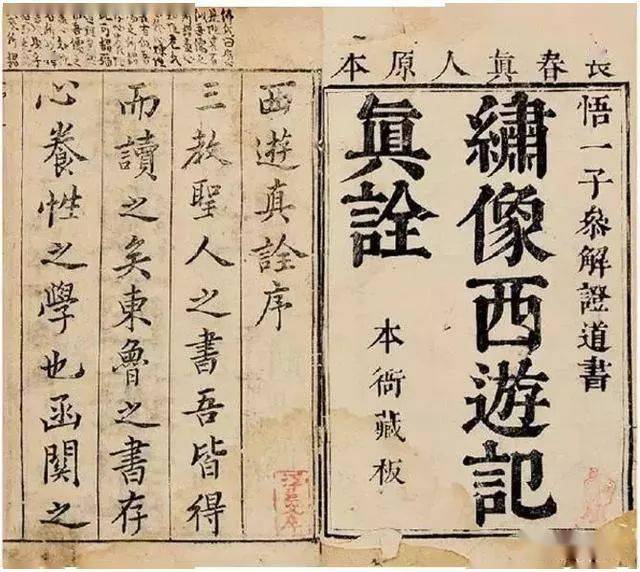 長春真人原本
悟一子參解證道書
繡像西遊記
眞詮
本衙藏板
西遊真詮序
三教聖人之書吾皆得
而讀之矣東魯之書存
心養性之學也函關之